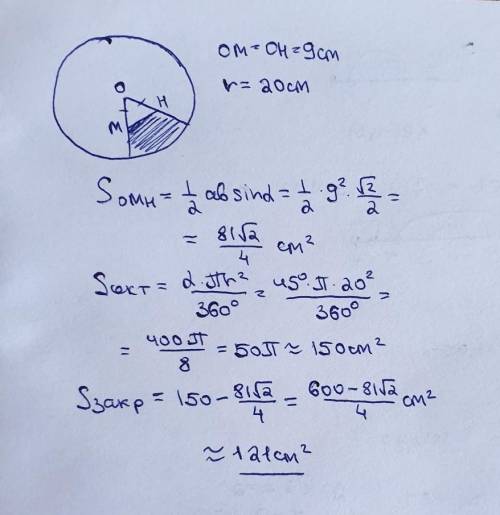 OM = OH = 9см
r = 20см
O
H
M
S омн = 1/2 ab sinα = 1/2 · 9² · √2/2 =
= 81√2/4 см²
S сект = α · πr²/360° = 45° · π · 20²/360° =
= 400π/8 = 50π ≈ 150см²
S закр = 150 - 81√2/4 = 600 - 81√2/4 см²
≈ 121см²